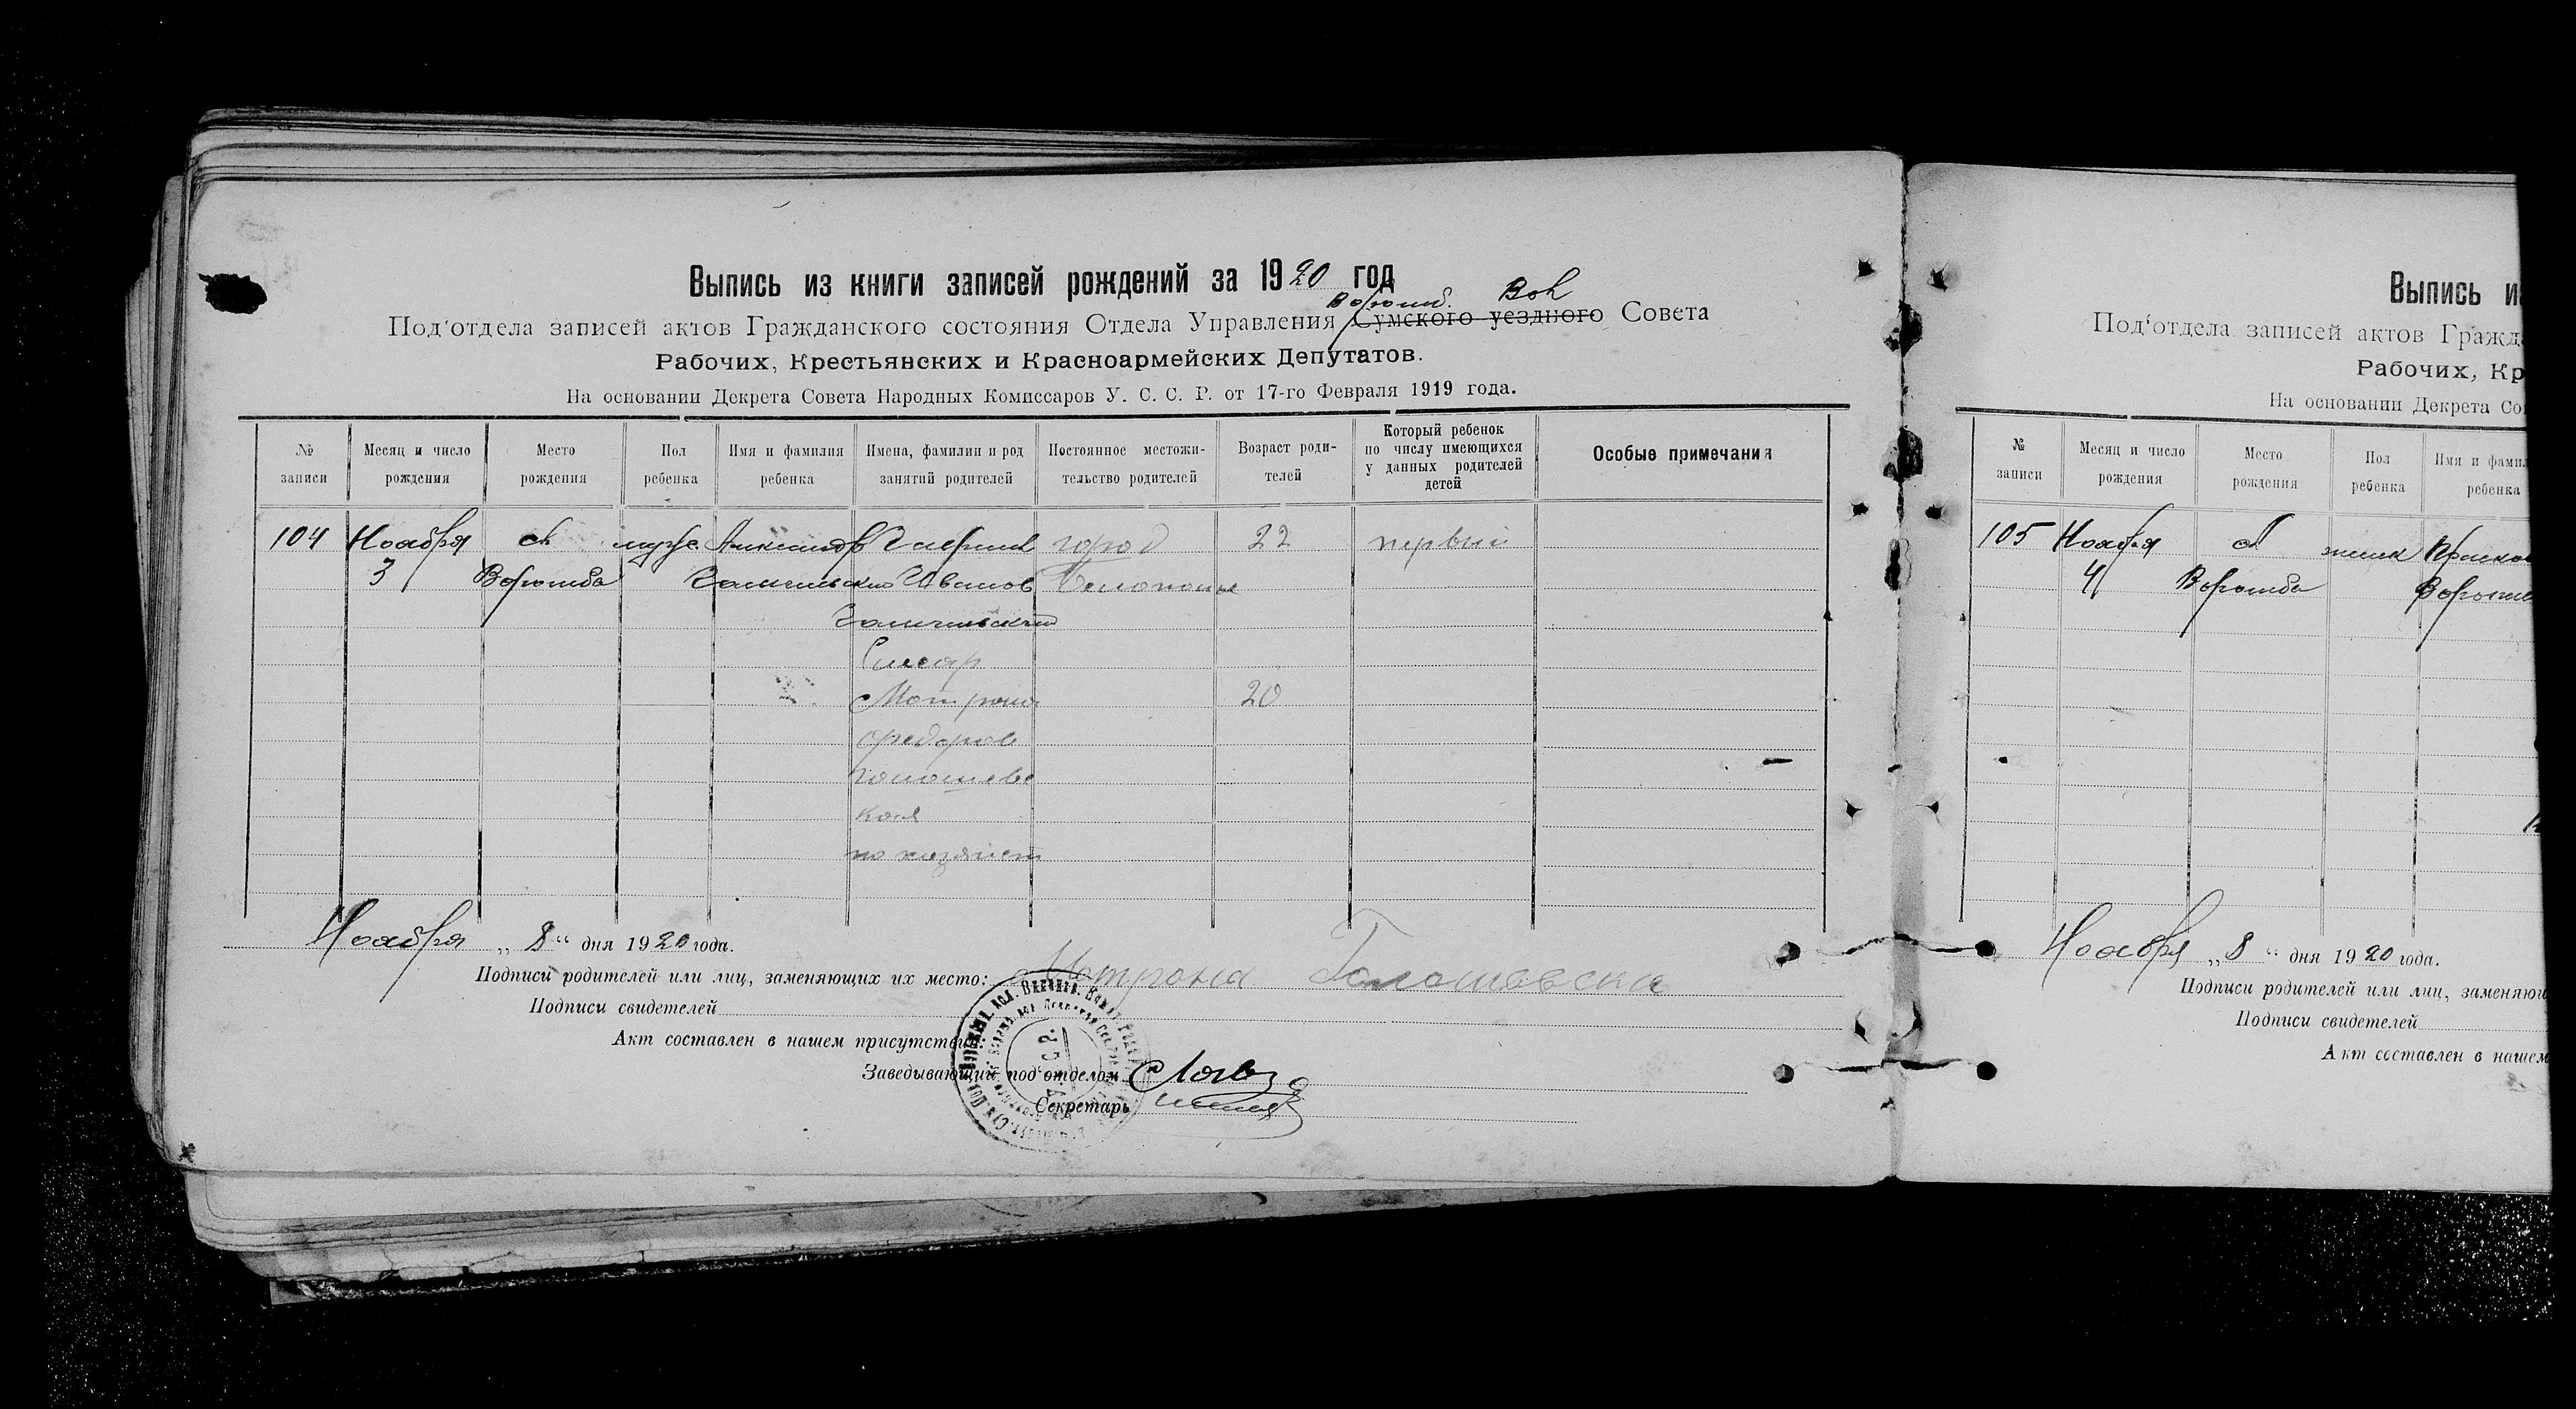 Выпись из книги записей рождений за 1920 год
Ворожб. Вол
Под'отдела записей актов Гражданского состояния Отдела Управления Сумского уездного Совета
Рабочих, Крестьянских и Красноармейских Депутатов.
На основании Декрета Совета Народных Комиссаров У. С. С. Р. от 17-го Февраля 1919 года.
№ записи
Месяц и число рождения
Место рождения
Пол ребенка
Имя и фамилия ребенка
Имена, фамилии и род занятий родителей
Постоянное местожительство родителей
Возраст родителей
Который ребенок по числу имеющихся у данных родителей детей
Особые примечания
104 Ноября сл мужс Александр город 22 первый
3 Ворожба Иванов Белополье
Слесар
Мотрона 20
Федоров
Голошевс
кая
по хозяйст
Ноября „8“ дня 1920 года.
Подписи родителей или лиц, заменяющих их место: Мотрона Голошевска
Подписи свидетелей
Акт составлен в нашем присутствии:
Заведывающий под'отделом
Секретарь
Выпись из
Под'отдела записей актов Гражда
Рабочих, Кр
На основании Декрета Со
№ записи
Месяц и число рождения
Место рождения
Пол ребенка
Имя и фамил
ребенка
105 Ноября сл женск
4 Ворожба
Ноября „8“ дня 1920 года.
Подписи родителей или лиц, заменяю
Подписи свидетелей
Акт составлен в нашем